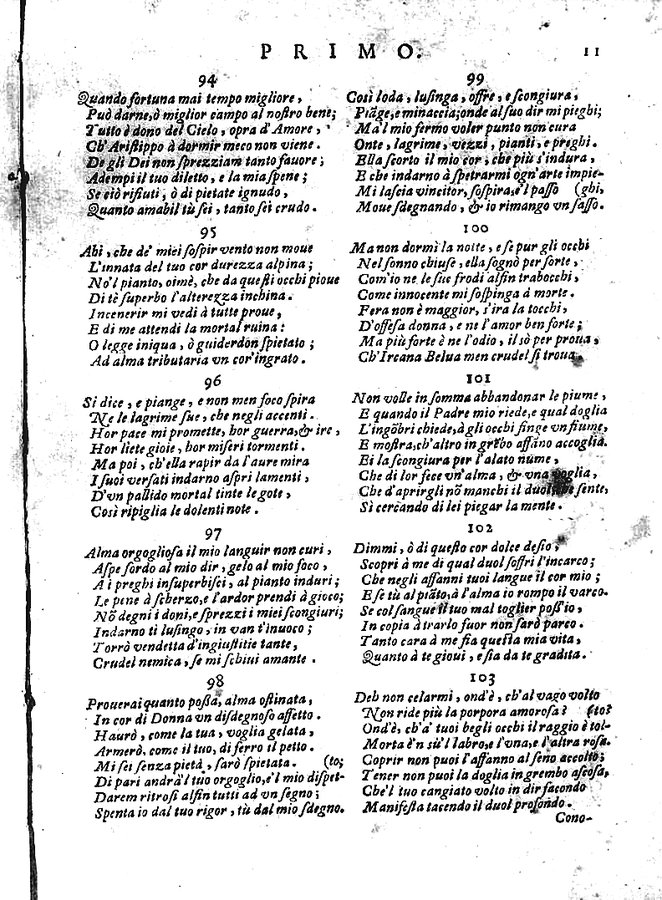 PRIMO. 11
94
Quando fortuna mai tempo migliore,
Può darne, ò miglior campo al nostro bene;
Tutto è dono del Cielo, opra d'Amore,
Ch'Aristippo à dormir meco non viene.
De gli Dei non sprezziam tanto fauore;
Adempi il tuo diletto, e la mia spene;
Se ciò rifiuti, ò di pietate ignudo,
Quanto amabil tù sei, tanto sei crudo.
95
Ahi, che de' miei sospir vento non moue
L'innata del tuo cor durezza alpina;
No'l pianto, oimè, che da questi occhi pioue
Di tè superbo l'alterezza inchina.
Incenerir mi vedi à tutte proue,
E di me attendi la mortal ruina:
O legge iniqua, ò guiderdon spietato;
Ad alma tributaria vn cor'ingrato.
96
Si dice, e piange, e non men foco spira
Ne le lagrime sue, che negli accenti.
Hor pace mi promette, hor guerra, & ire,
Hor liete gioie, hor miseri tormenti.
Ma poi, ch'ella rapir da l'aure mira
I suoi versati indarno aspri lamenti,
D'vn pallido mortal tinte le gote,
Così ripiglia le dolenti note.
97
Alma orgogliosa il mio languir non curi,
Aspe sordo al mio dir, gelo al mio foco,
A i preghi insuperbisci, al pianto induri;
Le pene à scherzo, e l'ardor prendi à gioco;
Nõ degni i doni, e sprezzi i miei scongiuri;
Indarno ti lusingo, in van t'inuoco;
Torrò vendetta d'ingiustitie tante,
Crudel nemica, se mi schiui amante.
98
Prouerai quanto possa, alma ostinata,
In cor di Donna vn disdegnoso affetto.
Haurò, come la tua, voglia gelata,
Armerò, come il tuo, di ferro il petto.
Mi sei senza pietà, sarò spietata. (to;
Di pari andrà'l tuo orgoglio, e'l mio dispet-
Darem ritrosi alfin tutti ad vn segno;
Spenta io dal tuo rigor, tù dal mio sdegno.
99
Così loda, lusinga, offre, e scongiura,
Piãge, e minaccia; onde al suo dir mi pieghi;
Ma'l mio fermo voler punto non cura
Onte, lagrime, vezzi, pianti, e preghi.
Ella scorto il mio cor, che più s'indura,
E che indarno à spetrarmi ogn'arte impie-
Mi lascia vincitor, sospira, e'l passo (ghi,
Moue sdegnando, & io rimango vn sasso.
100
Ma non dormì la notte, e se pur gli occhi
Nel sonno chiuse, ella sognò per sorte,
Com'io ne le sue frodi alfin trabocchi,
Come innocente mi sospinga à morte.
Fera non è maggior, s'ira la tocchi,
D'offesa donna, e ne l'amor ben forte;
Ma più forte è ne l'odio, il sò per proua,
Ch'Ircana Belua men crudel si troua.
101
Non volle in somma abbandonar le piume,
E quando il Padre mio riede, e qual doglia
L'ingõbri chiede, à gli occhi finge vn fiume,
E mostra, ch'altro in grẽbo affãno accoglia.
Ei la scongiura per l'alato nume,
Che di lor fece vn'alma, & vna voglia,
Che d'aprirgli nõ manchi il duol, che sente,
Sì cercando di lei piegar la mente.
102
Dimmi, ò di questo cor dolce desio,
Scopri à me di qual duol soffri l'incarco;
Che negli affanni tuoi langue il cor mio;
E se tù al piãto, à l'alma io rompo il varco.
Se col sangue il tuo mal toglier poss'io,
In copia à trarlo fuor non sarò parco.
Tanto cara à me sia questa mia vita,
Quanto à te gioui, e sia da te gradita.
103
Deh non celarmi, ond'è, ch'al vago volto
Non ride più la porpora amorosa? (to?
Ond'è, ch'a' tuoi begli occhi il raggio è tol-
Morta è'n sù'l labro, e l'vna, e l'altra rosa.
Coprir non puoi l'affanno al seno accolto;
Tener non puoi la doglia in grembo ascosa,
Che'l tuo cangiato volto in dir facondo
Manifesta tacendo il duol profondo.
Cono-